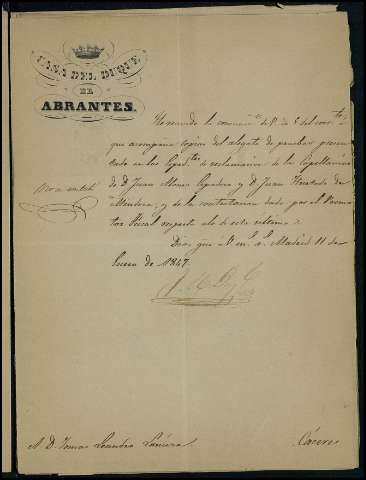 CASA DEL DUQUE
DE
ABRANTES.
He recibido la comunic.on de V. de 5 del corr.te a
que acompaña copia del alegato de pruebas presen
tado en los Esped.tes de reclamacion de la Capellania
de D. Juan Alonso Espadero y D. Juan Hurtado de
Mendoza, y de la contestacion dada por el Promo
tor Fiscal respecto á lo de esta ultima.
Dios gue á V. m. a. Madrid 11 de
Enero de 1847.
S.r D. Tomas Leandro
Cáceres